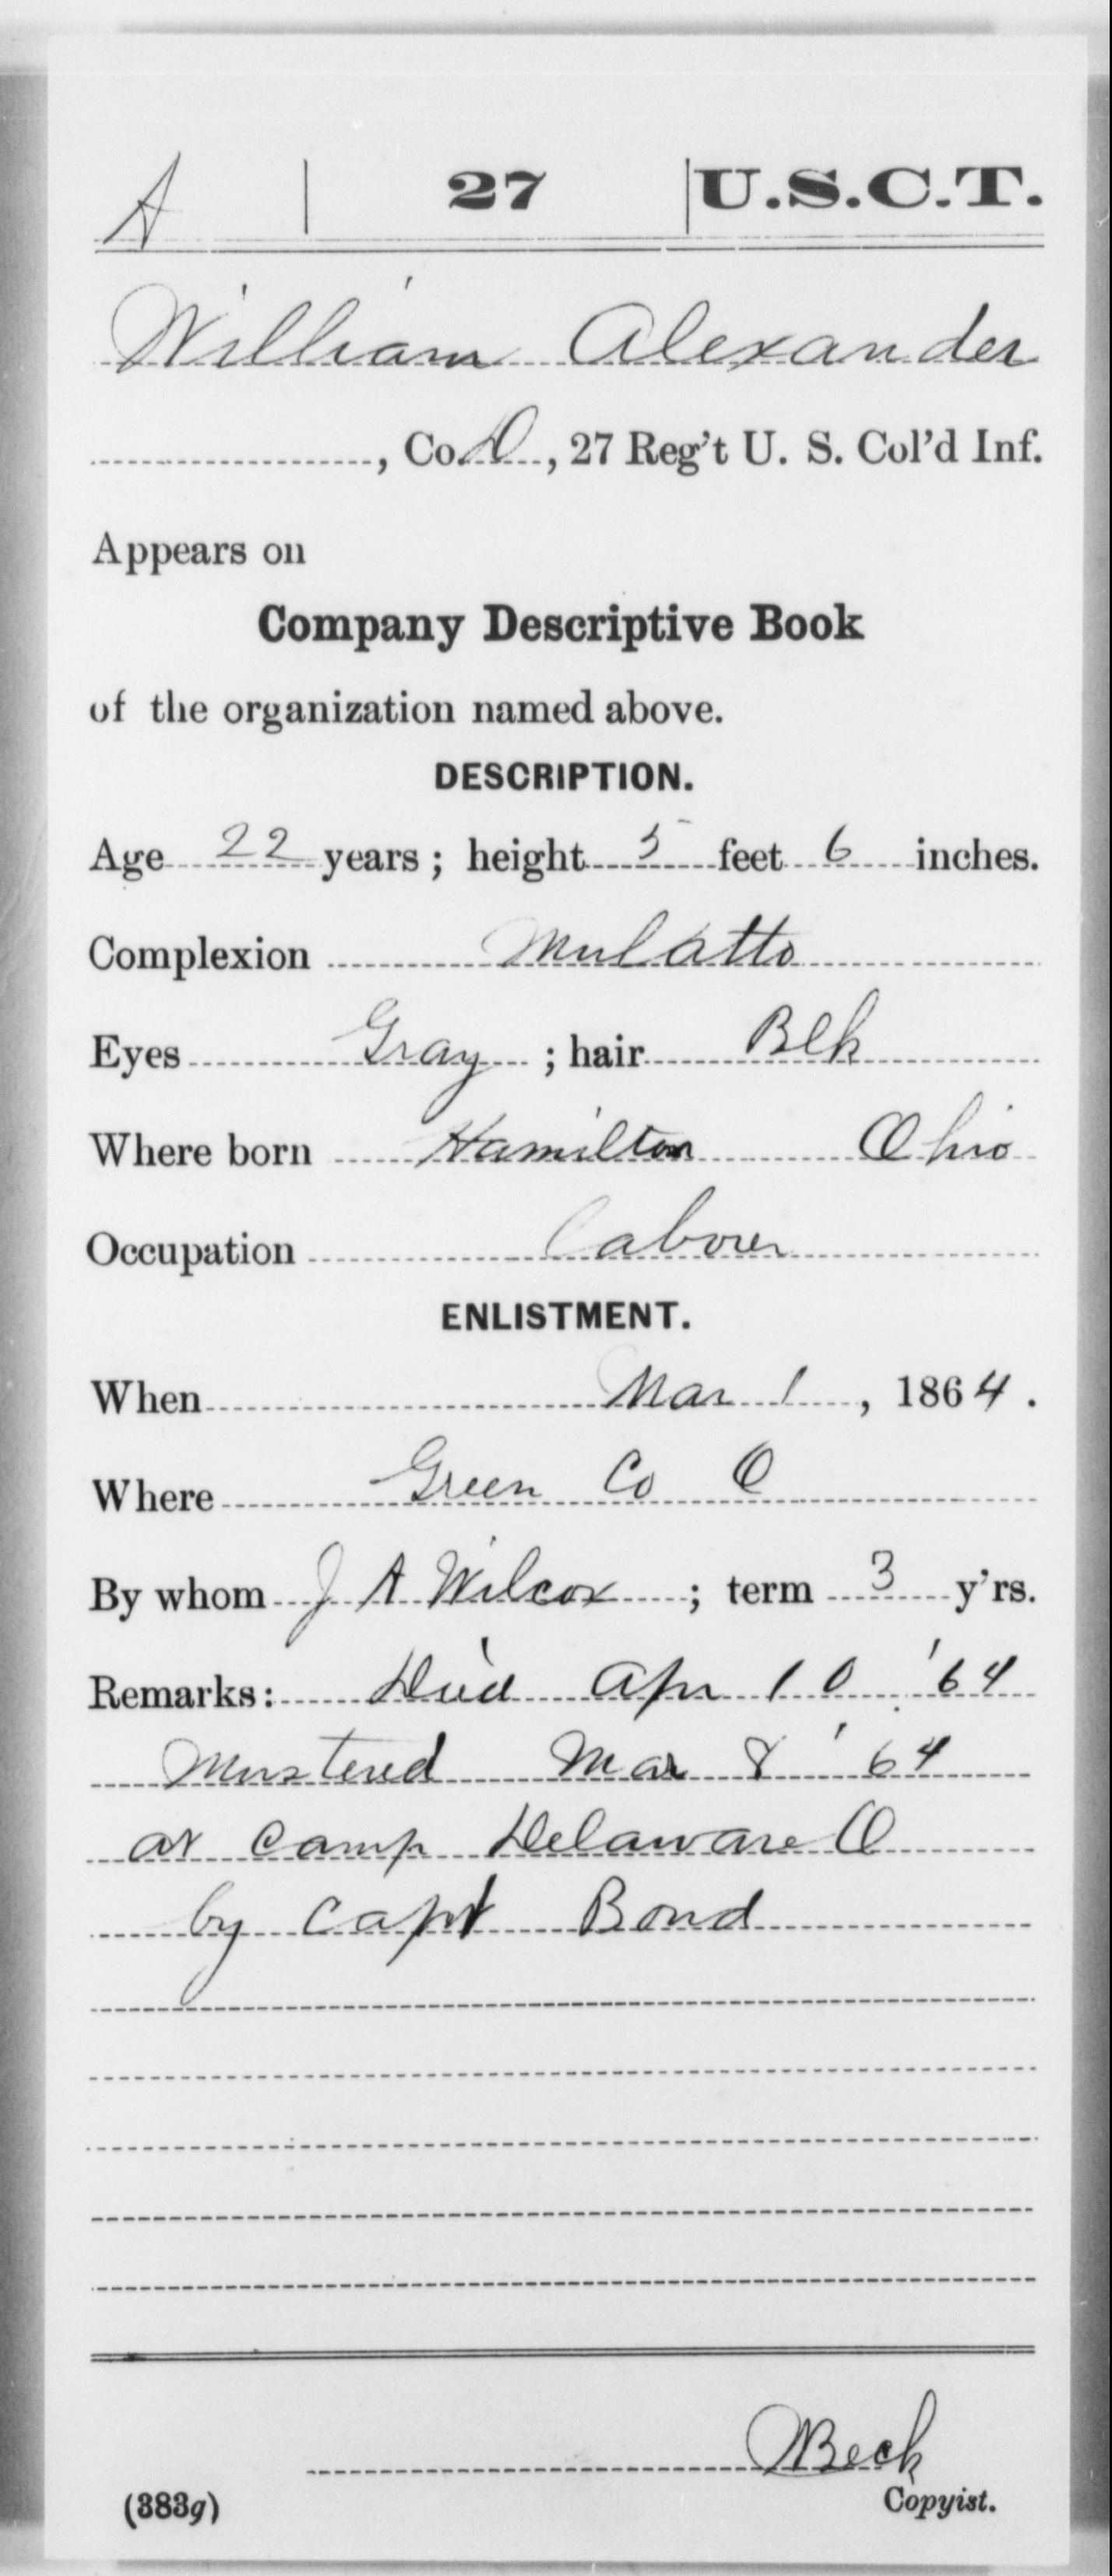 A | 27 | U.S.C.T.
William Alexander
, Co. D, 27 Reg't U. S. Col'd Inf.
Appears on
Company Descriptive Book
of the organization named above.
DESCRIPTION.
Age 22 years; height 5 feet 6 inches.
Complexion Mulatto
Eyes Gray; hair Blk
Where born Hamilton Ohio
Occupation Labourer
ENLISTMENT.
When Mar 1, 1864.
Where Green Co O
By whom J A Wilcox; term 3 y'rs.
Remarks: Died Apr 10 '64
Mustered Mar 8 '64
at Camp Delaware O
by Capt Bond
Beck
(383g) Copyist.